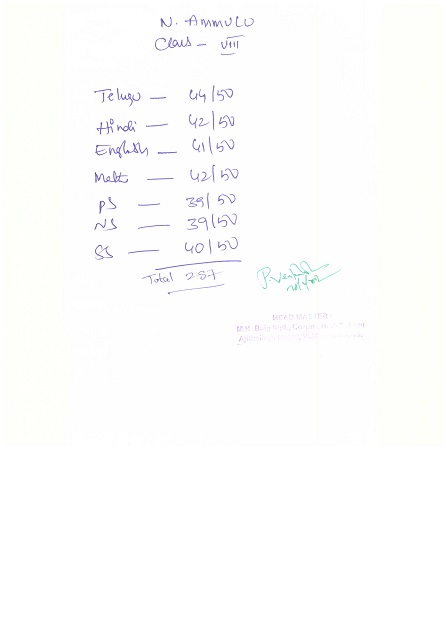 N. AMMULU
Class - VIII
Telugu — 44/50
Hindi — 42/50
English — 41/50
Matt — 42/50
PS — 39/50
NS — 39/50
SS — 40/50
Total 287
HEAD MASTER